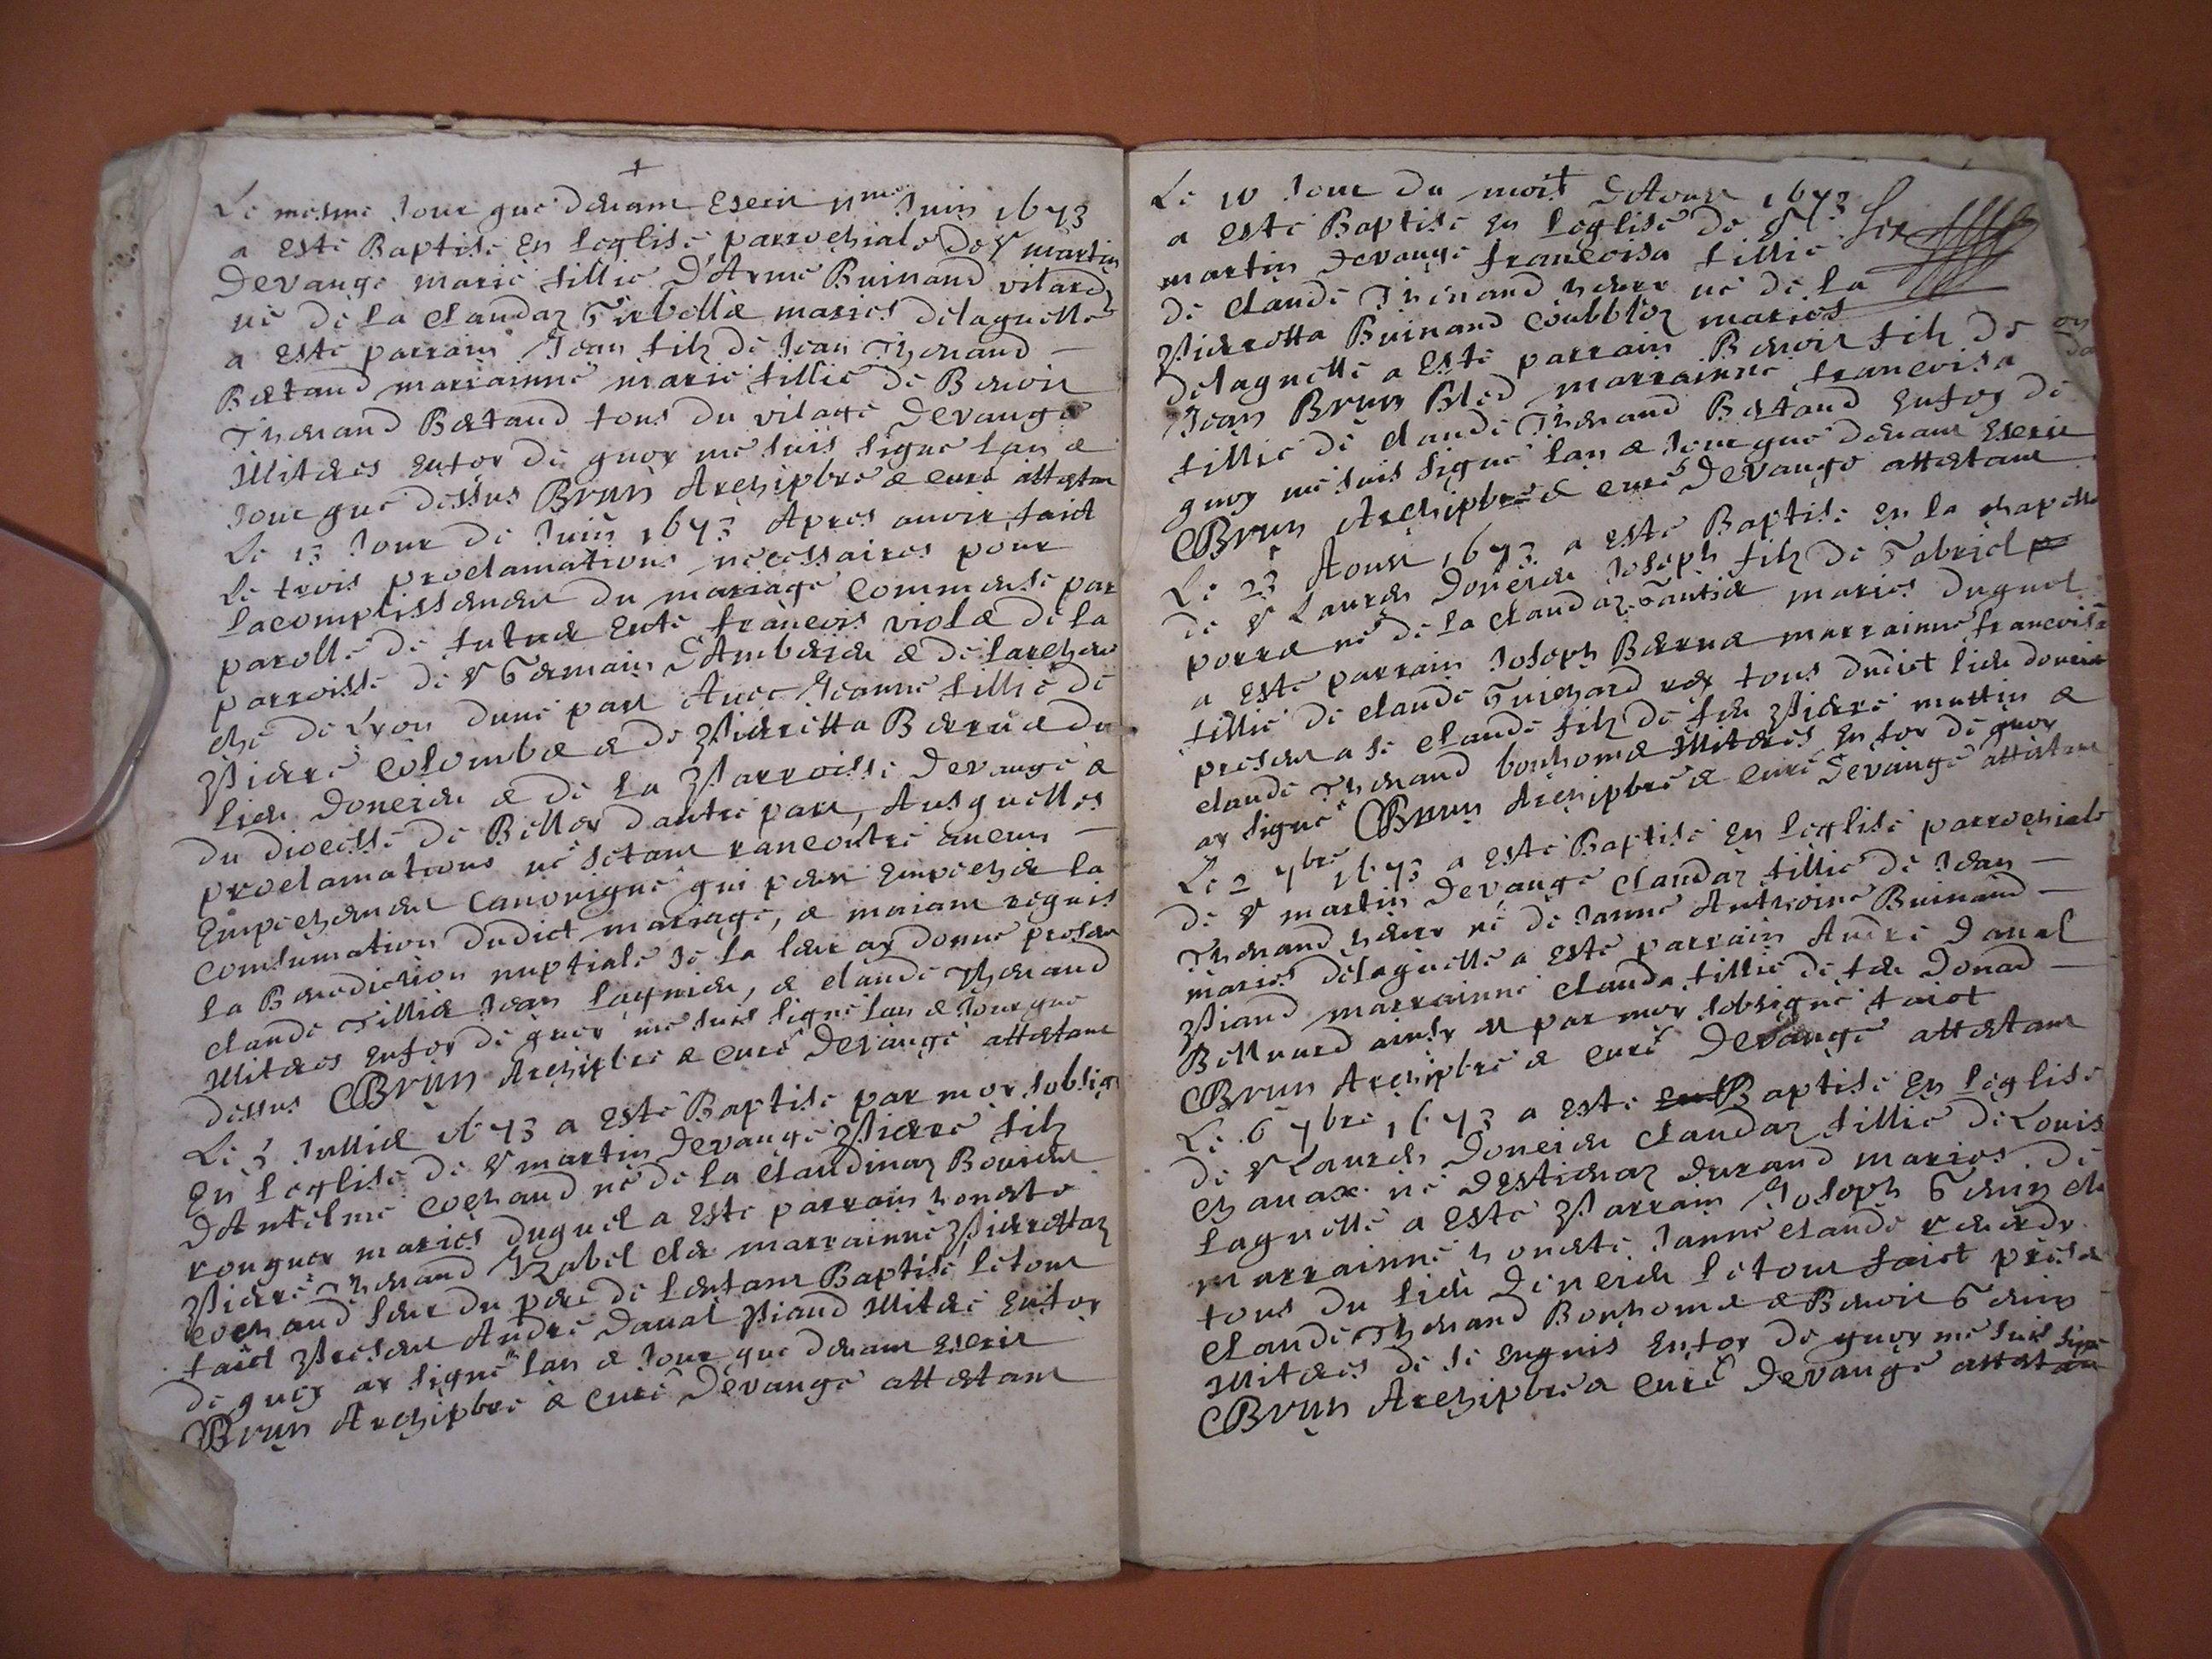 Le mesme Jour que devant Escrit 11me Juin 1673
a esté Baptisé En leglise parrochiale de St martin
Devange marie fillie D'Ayme Buinand vilard
né de la Claudaz Girbellie mariés delaquelle
a esté parrain Jean filz de Jean Thenand
Betand marrainne marie fillie de Benoit
Thenand Betand tous du vilage Devange
Miteres En foy de quoy me suis signé lan &
Jour que dessus Brun Archipbre & curé attestan
Le 13 Jour de Juin 1673 Apres avoir faict
Le trois proclamations necessaires pour
Lacomplissement du mariage Commensé par
parolle de future Entre francois violet de la
parroisse de St Germain D'Amberieu & de larches
ché de Lyon dune part Avec Jeanne fillie de
Pierre Colombet & de Pierretta Berruet du
lieu Doncieu & de la Parroisse Devange &
du diocesse de Belley dautre part, Ausquelles
proclamations ne setant rancontré aucun
Empechement Canonique qui peut Empecher la
Consumation dudict mariage, & moiant requis
la Benediction nuptiale Je la leur ay donné present
claude Tillier Jean lagnieu, & claude Thenand
Miteres En foy de quoy me suis signé lan & Jour que
dessus Brun Archipbre & curé Devange attestant
Le 5 Jullie 1673 a esté Baptisé par moy sobsig
En leglise de St martin Devange Pierre filz
D'Antelme Cochand né de la Claudinaz Bourdin
rouguey mariés duquel a esté parrain honeste
Pierre Thenand Izabel cler marrainne Pierrettaz
Cochand seur du pere de lenfant Baptisé le tout
faict Present André Daval Piand Miteré En foy
de quoy ay signé lan & Jour que devant Escrit
Brun Archipbre & curé Devange attestant
Le 10 Jour du mois D'Aoust 1673
a esté Baptisé En leglise de St
martin Devange francoisa fillie
de Claude Thenand henry né de la
Pierretta Buinand Coubbloz mariés
delaquelle a esté parrain Benoit filz de
Jean Brun Bled marrainne francoisa
fillie de claude Thenand Bertand En foy de
quoy me suis signé lan & Jour que devant Escrit
Brun Archipbre & curé Devange attestant
Le 23 Aoust 1673 a esté Baptisé En la chapelle
de St Laurens Doncieu Joseph filz de Gabriel
porret né de la Claudaz Gautier mariés duquel
a esté parrain Joseph Berruet marrainne francoisa
fillie de claude Guichard tous dudict lieu doncieu
present a se claude filz de feu Pierre muttin &
claude Thenand bonhomet Miteres En foy de quoy
ay signé Brun Archipbre & curé Devange attestant
Le 2 7bre 1673 a esté Baptisé En leglise parrochiale
de St martin Devange Claudaz fillie de Jean
Thenand henry né de Janne Anthoine Buinand
mariés delaquelle a esté parrain André Daval
Piand marrainne Clauda fillie de feu Donad
Belluard ainsy est par moy sobsigné faict
Brun Archipbre & curé Devange attestant
Le 6 7bre 1673 a esté Baptisé En leglise
de St Laurens Doncieu Claudaz fillie de Louis
Chanax né D'Estienaz Durand mariés de
laquelle a esté Parrain Joseph Genin
marrainne honeste Janne claude
tous du lieu Doncieu le tout faict present
Claude Thenand Bonhomet & Benoit Genin
Miteres de se Enquis En foy de quoy me suis signé
Brun Archipbre & curé Devange attestan